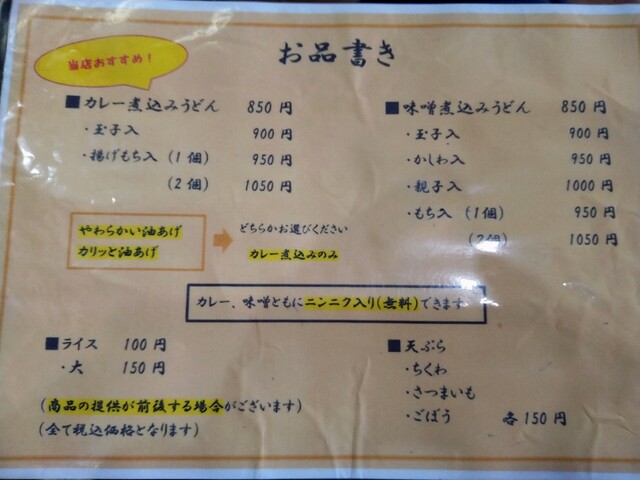 お品書き
当店おすすめ！
■カレー煮込みうどん 850円
・玉子入 900円
・揚げもち入（1個） 950円
（2個） 1050円
■味噌煮込みうどん 850円
・玉子入 900円
・かしわ入 950円
・親子入 1000円
・もち入（1個） 950円
（2個） 1050円
やわらかい油あげ
カリッと油あげ
どちらかお選びください
カレー煮込みのみ
カレー、味噌ともにニンニク入り（無料）できます
■ライス 100円
・大 150円
（商品の提供が前後する場合がございます）
（全て税込価格となります）
■天ぷら
・ちくわ
・さつまいも
・ごぼう 各150円